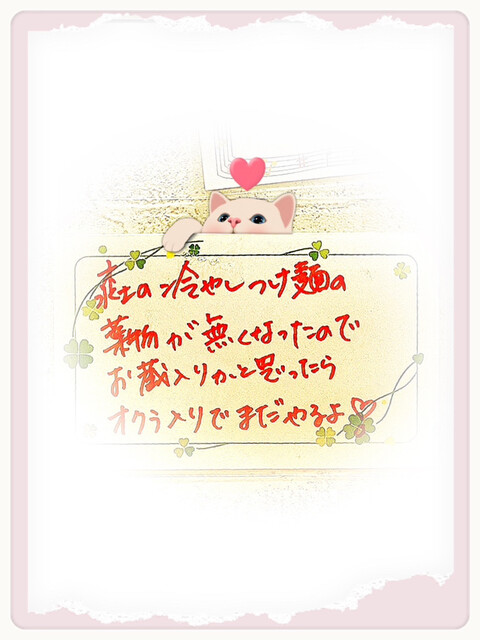 の冷やしつけ麺の
薬物が無くなったので
お蔵入りかと思ったら
オクラ入りでまだやるよ